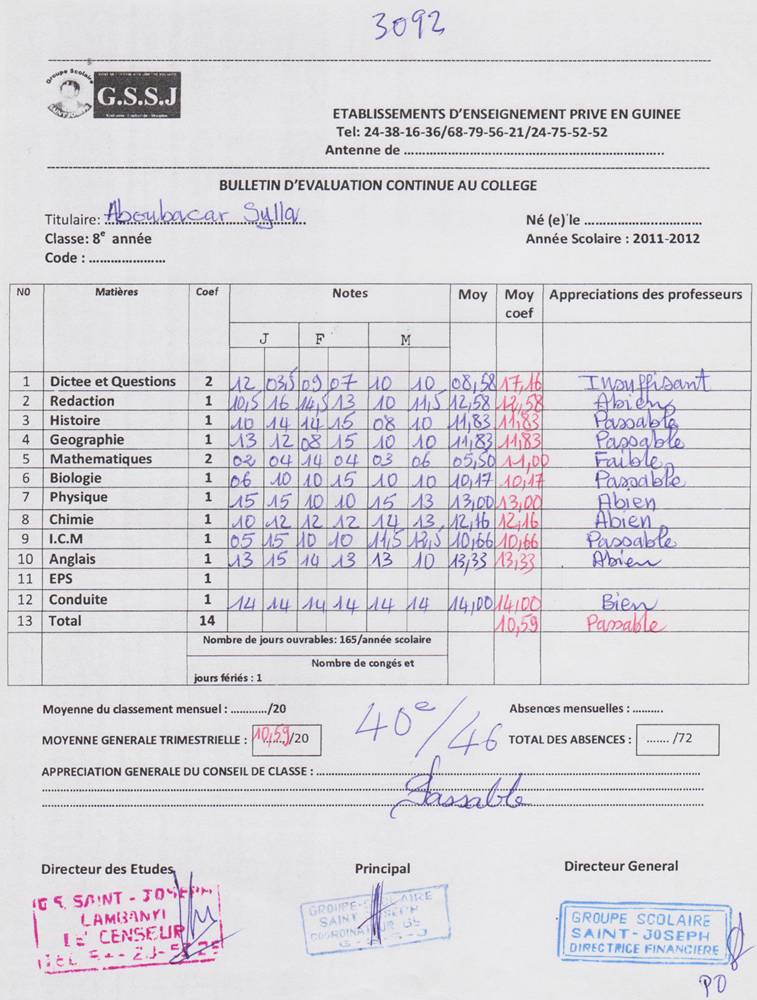 3092
Groupe Scolaire
G.S.S.J
ETABLISSEMENTS D'ENSEIGNEMENT PRIVE EN GUINEE
Tel: 24-38-16-36/68-79-56-21/24-75-52-52
Antenne de ...........................................................
BULLETIN D'EVALUATION CONTINUE AU COLLEGE
Titulaire: Aboubacar Sylla
Né (e) le ...........................
Classe: 8e année
Année Scolaire : 2011-2012
Code : ....................
N0 Matières Coef Notes Moy Moy coef Appreciations des professeurs
J F M
1 Dictee et Questions 2 12 03,5 09 07 10 10 08,58 17,16 Insuffisant
2 Redaction 1 10,5 16 14,5 13 10 11,5 12,58 12,58 Abien
3 Histoire 1 10 14 14 15 08 10 11,83 11,83 Passable
4 Geographie 1 13 12 08 15 10 10 11,83 11,83 Passable
5 Mathematiques 2 02 04 14 04 03 06 05,50 11,00 Faible
6 Biologie 1 06 10 10 15 10 10 10,17 10,17 Passable
7 Physique 1 15 15 10 10 15 13 13,00 13,00 Abien
8 Chimie 1 10 12 12 12 14 13 12,16 12,16 Abien
9 I.C.M 1 05 15 10 10 11,5 12,5 10,66 10,66 Passable
10 Anglais 1 13 15 14 13 13 10 13,33 13,33 Abien
11 EPS 1
12 Conduite 1 14 14 14 14 14 14 14,00 14,00 Bien
13 Total 14 10,59 Passable
Nombre de jours ouvrables: 165/année scolaire
Nombre de congés et
jours fériés : 1
Moyenne du classement mensuel : ............/20
Absences mensuelles : ..........
40e/46
MOYENNE GENERALE TRIMESTRIELLE : 10,59/20
TOTAL DES ABSENCES : ....... /72
APPRECIATION GENERALE DU CONSEIL DE CLASSE :
Passable
Directeur des Etudes
Principal
Directeur General
G S SAINT - JOSEPH
LAMBANYI
LE CENSEUR
GROUPE-SCOLAIRE
SAINT JOSEPH
G - S - J
GROUPE SCOLAIRE
SAINT-JOSEPH
DIRECTRICE FINANCIERE
PO